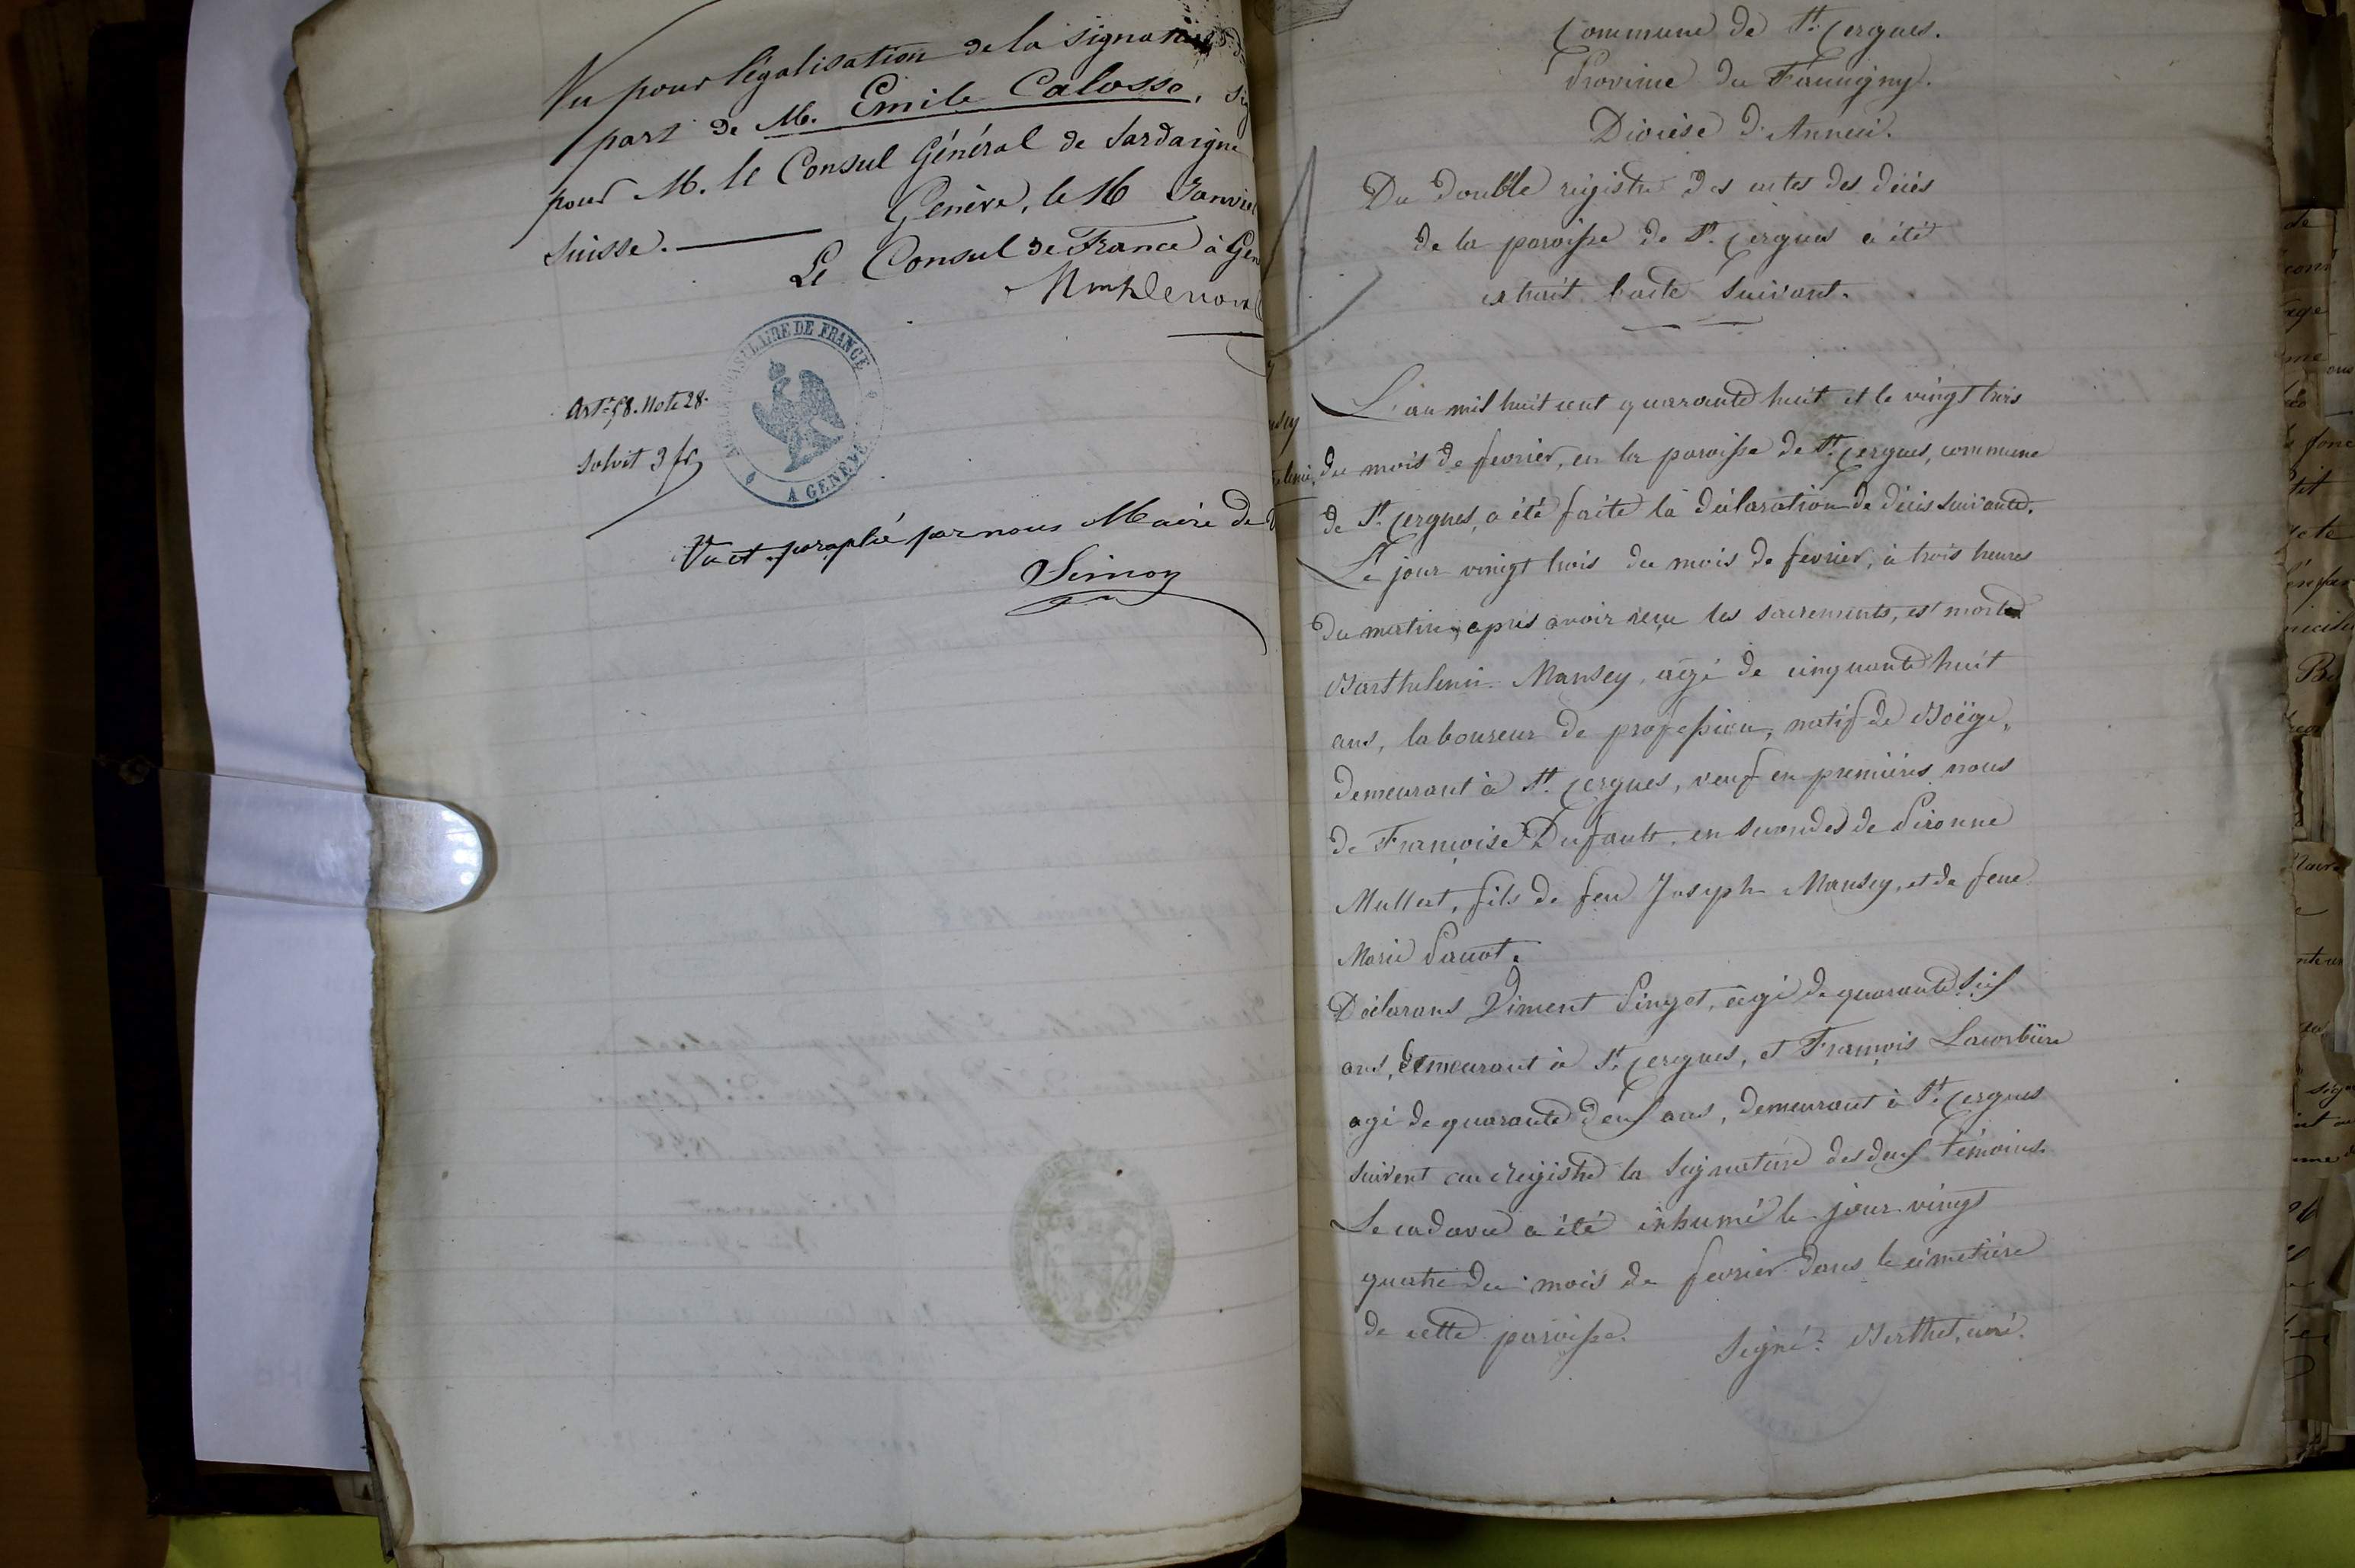 Vu pour légalisation de la signature
part de M. Emile Calosso,
pour M. le Consul Général de Sardaigne
Suisse. Genève, le 16 Janvie
Le Consul de France à Gen
CONSULAIRE DE FRANCE
A GENÈVE
Art. 58. Note 28.
Solvit 3 fc
Vu et paraphé par nous Maire de
Simon
Commune de St. Cergues.
Province du Faucigny.
Diocèse d'Anneci.
Du double régistre des actes des décès
de la paroisse de St. Cergues a été
extrait l'acte suivant.
L'an mil huit cent quarante huit et le vingt trois
du mois de fevrier, en la paroisse de St. Cergues, commune
de St. Cergues, a été faite la déclaration de décès suivante.
Le jour vingt trois du mois de fevrier, à trois heures
du matin, après avoir reçu les sacrements, est mort
Barthelemi Mansey, agé de cinquante huit
ans, laboureur de profession, natif de Boëge,
demeurant à St. Cergues, veuf en premières noces
de Françoise Dufault, en secondes de Pironne
Mullat, fils de feu Joseph Mansey, et de feue
Marie
Déclarans Viment Pinget, agé de quarante six
ans, demeurant à St. Cergues, et François Lacorbière
agé de quarante deux ans, demeurant à St. Cergues
suivent au régistre la signature des deux témoins.
Le cadavre a été inhumé le jour vingt
quatre du mois de fevrier dans le cimetière
de cette paroisse. Signé: Berthet, curé.